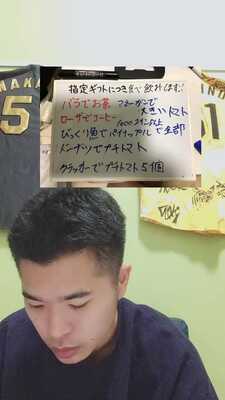 MAKA
5
1
指定ギフトにつき食べ飲みします!
バラでお茶 マネーガンで
大きいトマト
ローザでコーヒー 1000コイン以上
びっくり魚でパイナップル で全部
ドーナツでプチトマト
クラッカーでプチトマト5個